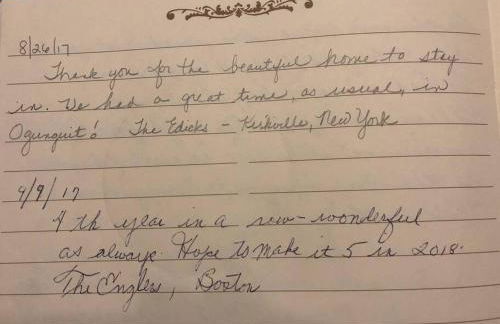 8/26/17
Thank you for the beautiful home to stay
in. We had a great time, as usual, in
Ogunquit! The Edicks - Kirkville, New York
9/9/17
4th year in a row - wonderful
as always. Hope to make it 5 in 2018.
The Engless, Boston